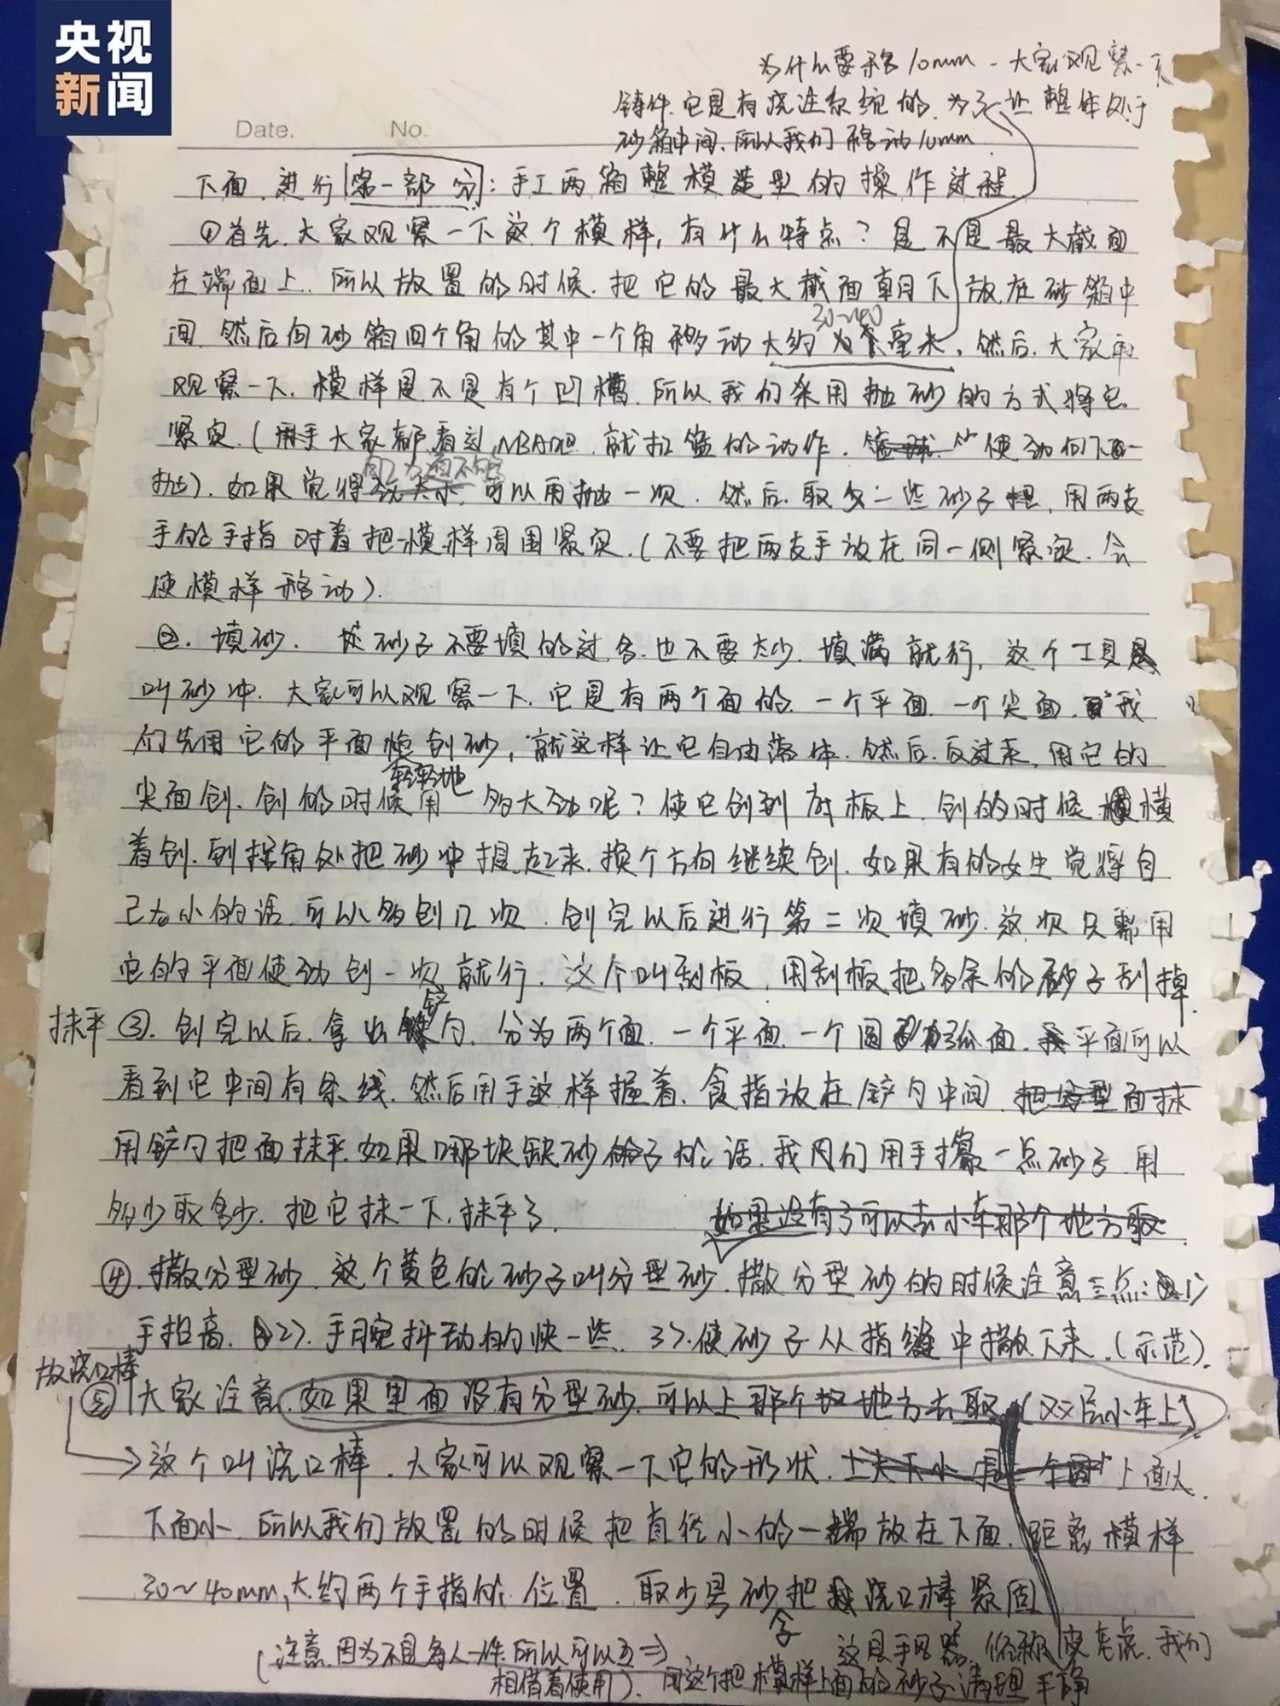 央视
新闻
为什么要移10mm - 大家观察一下
铸件.它是有浇注系统的.为了让整体处于
砂箱中间.所以我们移动10mm
Date. No.
下面.进行第一部分:手工两箱整模造型的操作过程
①首先.大家观察一下这个模样,有什么特点?是不是最大截面
在端面上.所以放置的时候.把它的最大截面朝下放在砂箱中
30~40
间.然后向砂箱四个角的其中一个角移动大约为毫米.然后.大家再
观察一下.模样是不是有个凹槽.所以我们采用抛砂的方式将它
紧实.(用手大家都看过NBA吧.就扣篮的动作.使劲向下一
抛).如果觉得可以再抛一次.然后.取少一些砂子,用两支
手的手指对着把模样周围紧实.(不要把两支手放在同一侧紧实.会
使模样移动).
②.填砂.砂子不要填的过多.也不要太少.填满就行.这个工具
叫砂冲.大家可以观察一下.它是有两个面的.一个平面.一个尖面.我
们先用它的平面刨砂,就这样让它自由落体.然后.反过来,用它的
轻轻地
尖面刨.刨的时候用多大劲呢?使它刨到底板上.刨的时候横
着刨.到拐角处把砂冲提起来.换个方向继续刨.如果有的女生觉得自
己力小的话.可以多刨几次.刨完以后进行第二次填砂.这次只需用
它的平面使劲刨一次就行.这个叫刮板.用刮板把多余的砂子刮掉
抹平③.刨完以后.拿出铲勺.分为两个面.一个平面.一个圆弧面.平面可以
看到它中间有条线.然后用手这样握着.食指放在铲勺中间.把分型面抹
用铲勺把面抹平.如果哪块缺砂子的话.我们用手攥一点砂子.用
多少取多少.把它抹一下.抹平了. 如果没有了可以去小车那个地方取
④.撒分型砂.这个黄色的砂子叫分型砂.撒分型砂的时候注意三点:1)
手抬高.2).手腕抖动的快一些.3).使砂子从指缝中撒下来.(示范).
放浇口棒
⑤大家注意.如果里面没有分型砂.可以上那个地方去取(XX后小车上)
这个叫浇口棒.大家可以观察一下它的形状.上面大.
下面小.所以我们放置的时候把直径小的一端放在下面.距离模样
30~40mm,大约两个手指的位置.取少量砂把浇口棒紧固
(注意.因为不是每人一件.所以可以互
相借着使用).用这个把模样上面的砂子清理干净
这是手风器.俗称皮老虎.我们